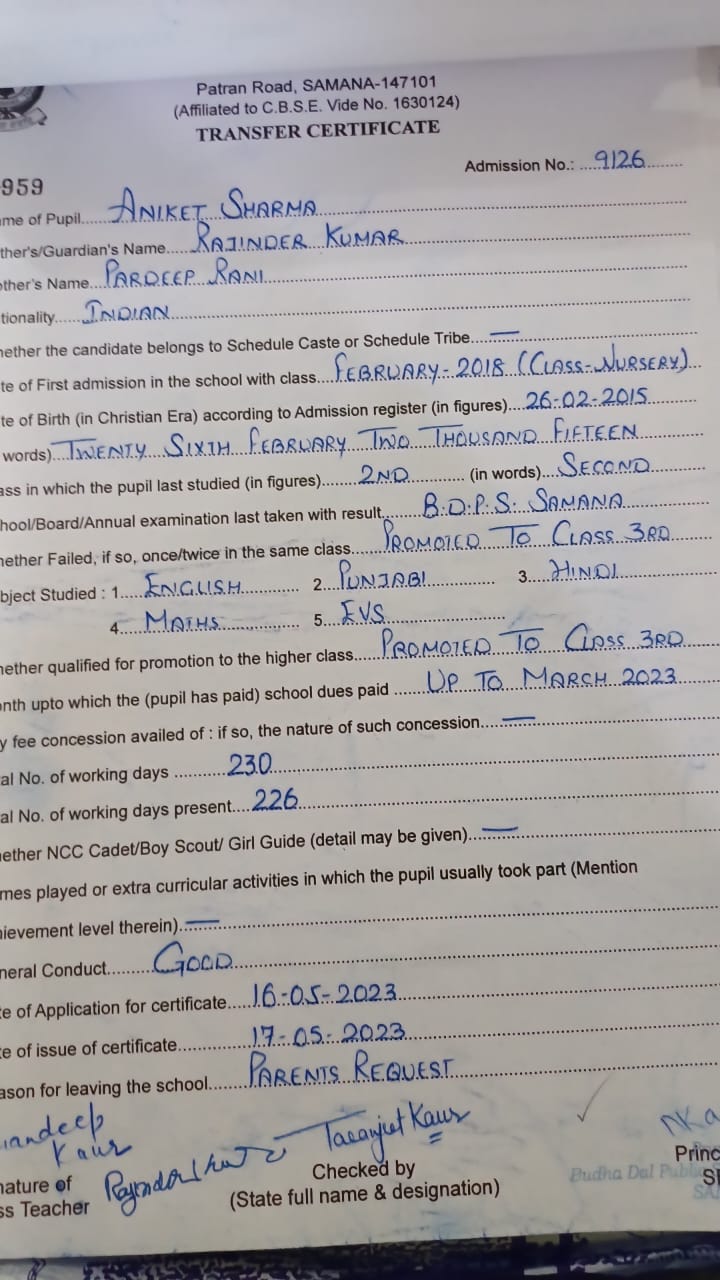 Patran Road, SAMANA-147101
(Affiliated to C.B.S.E. Vide No. 1630124)
TRANSFER CERTIFICATE
Admission No.: 9126
959
me of Pupil ANIKET SHARMA
ther's/Guardian's Name RAJINDER KUMAR
other's Name PARDEEP RANI
tionality INDIAN
hether the candidate belongs to Schedule Caste or Schedule Tribe —
te of First admission in the school with class FEBRUARY - 2018 (CLASS-NURSERY)
te of Birth (in Christian Era) according to Admission register (in figures) 26-02-2015
words) TWENTY SIXTH FEBRUARY TWO THOUSAND FIFTEEN
ass in which the pupil last studied (in figures) 2ND (in words) SECOND
hool/Board/Annual examination last taken with result B.D.P.S. SAMANA
hether Failed, if so, once/twice in the same class PROMOTED TO CLASS 3RD
bject Studied : 1. ENGLISH 2. PUNJABI 3. HINDI
4. MATHS 5. EVS
hether qualified for promotion to the higher class PROMOTED TO CLASS 3RD
onth upto which the (pupil has paid) school dues paid UP TO MARCH 2023
y fee concession availed of : if so, the nature of such concession —
al No. of working days 230
al No. of working days present 226
hether NCC Cadet/Boy Scout/ Girl Guide (detail may be given) —
mes played or extra curricular activities in which the pupil usually took part (Mention
hievement level therein) —
neral Conduct GOOD
te of Application for certificate 16-05-2023
te of issue of certificate 17-05-2023
ason for leaving the school PARENTS REQUEST
andeep
Kaur
Taranjeet Kaur
nature of
ss Teacher
Checked by
(State full name & designation)
Princ
Budha Dal Publi